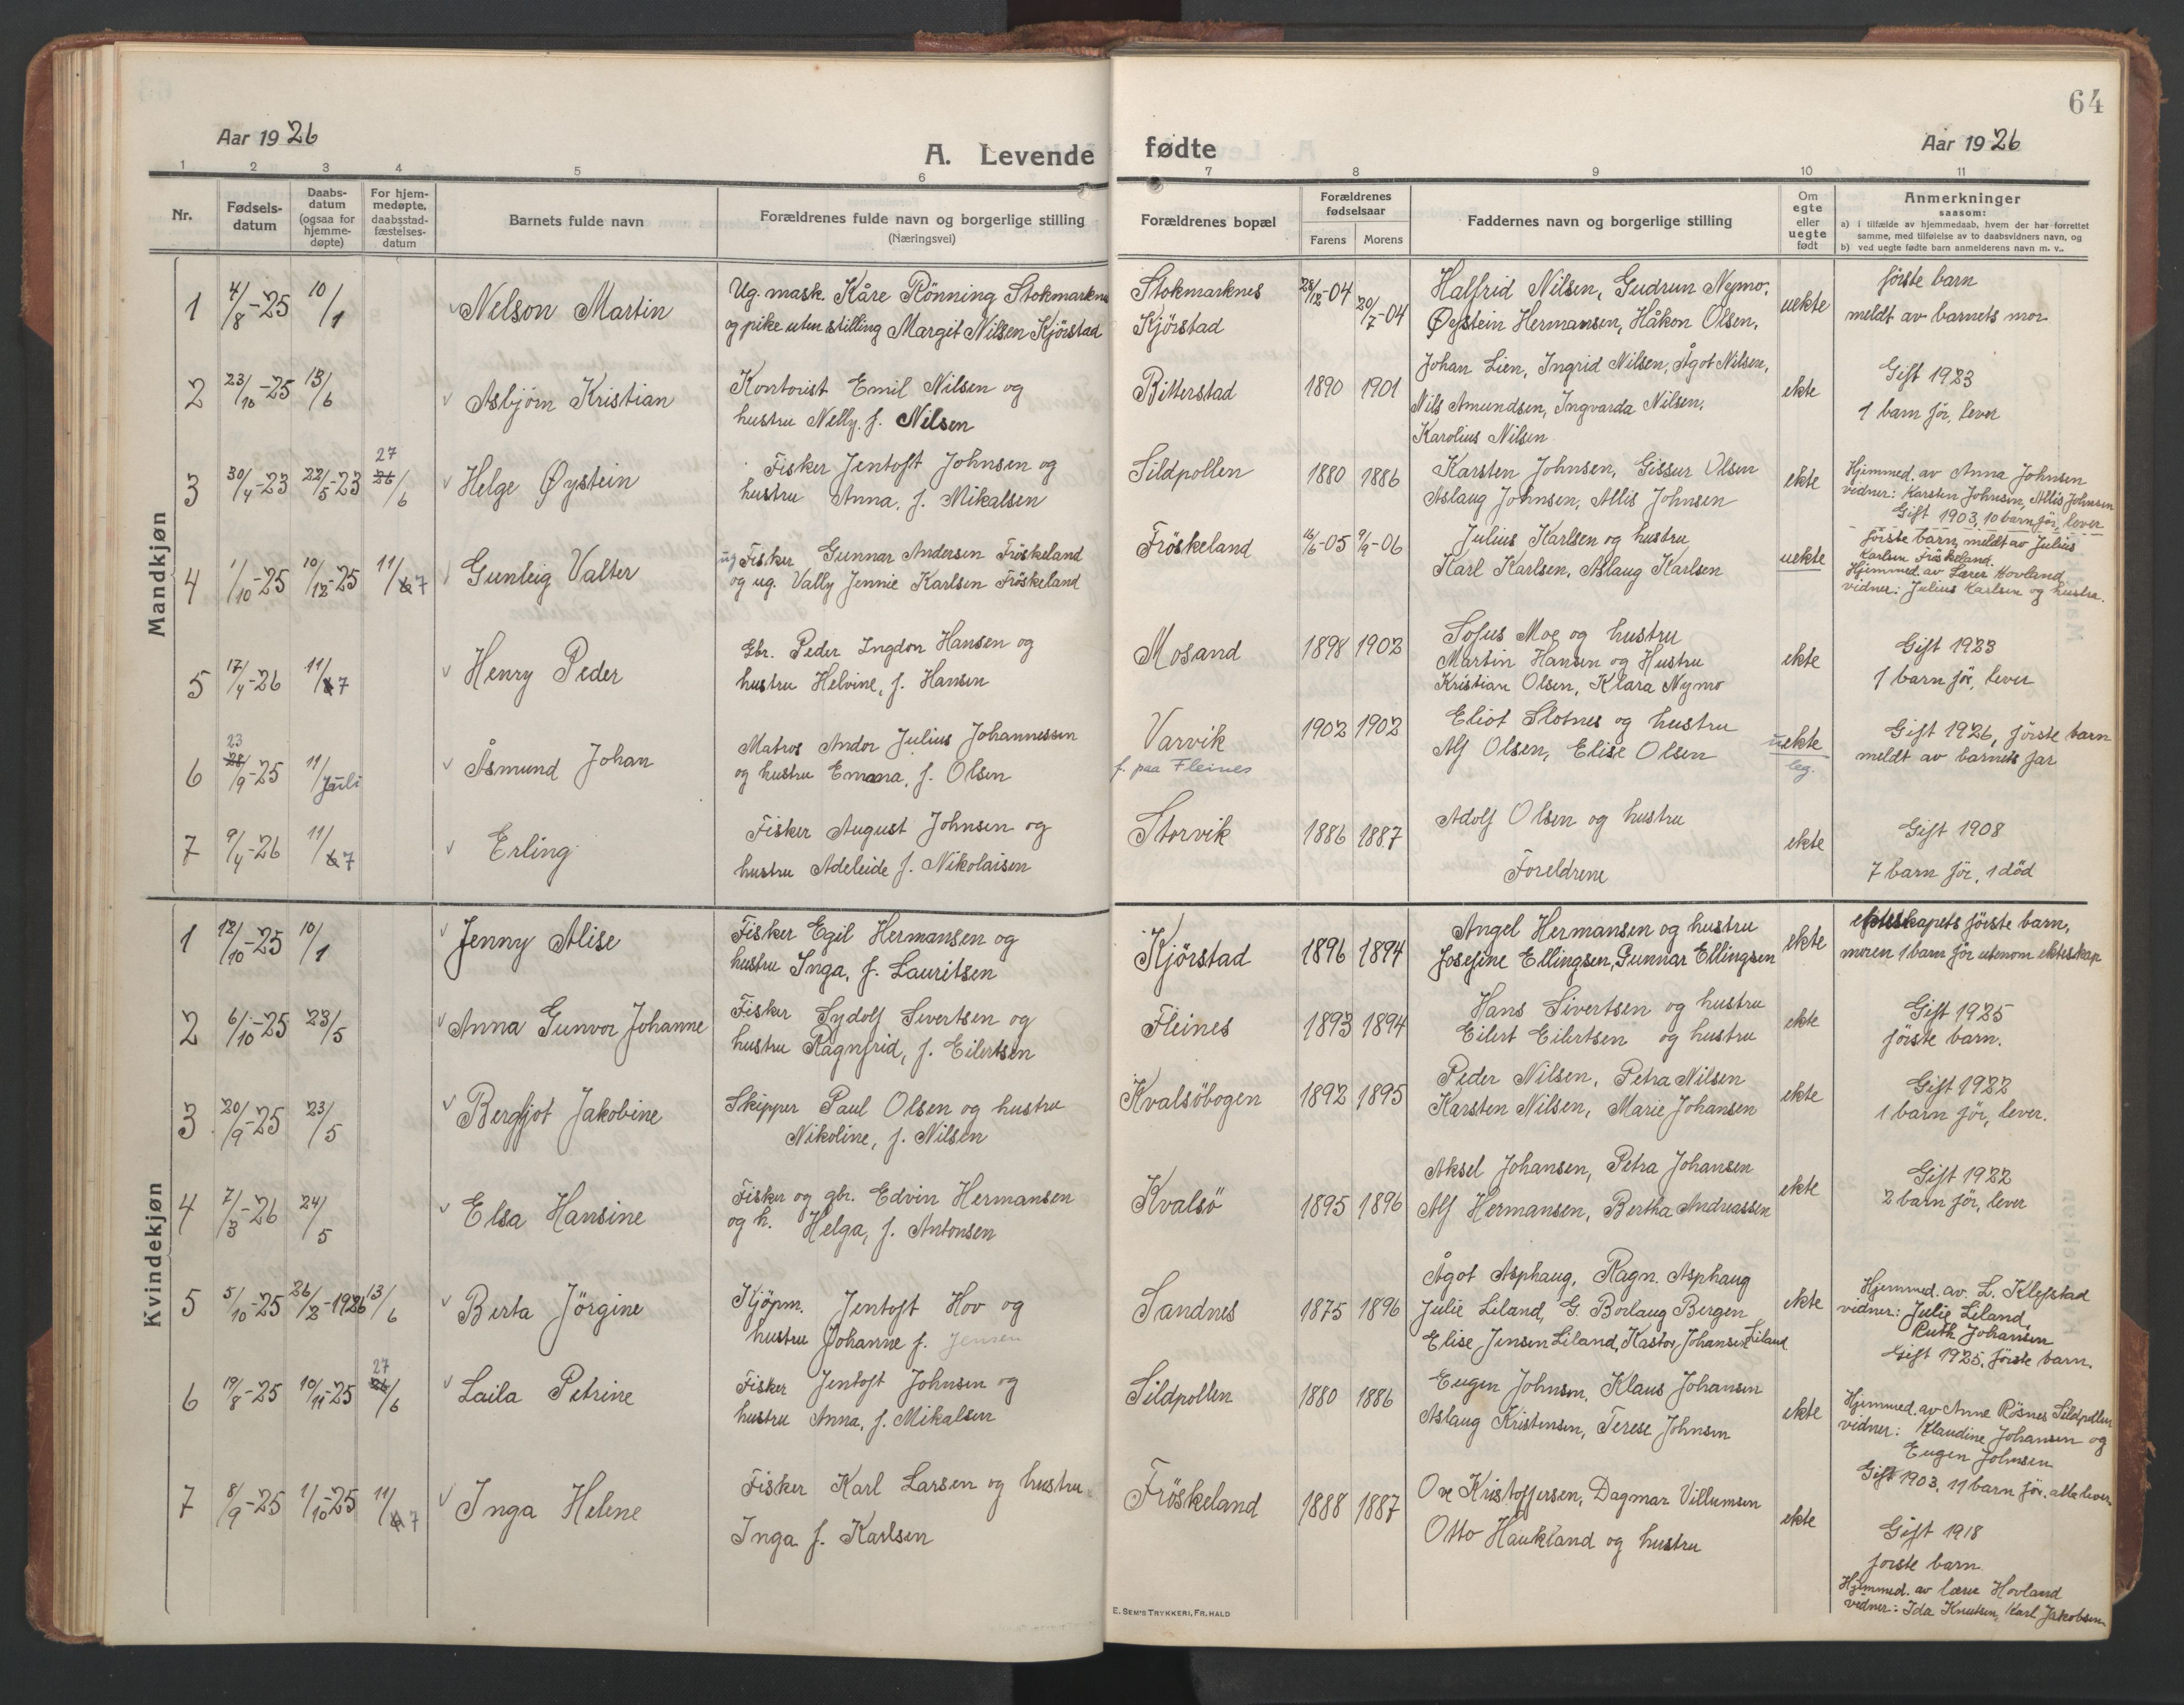 64
Aar 1926
A. Levende fødte
Aar 1926
1 2 3 4 5 6 7 8 9 10 11
Nr.
Fødsels-
datum
Daabs-
datum
(ogsaa for
hjemme-
døpte)
For hjem-
medøpte,
daabsstad-
fæstelses-
datum
Barnets fulde navn
Forældrenes fulde navn og borgerlige stilling
(Næringsvei)
Forældrenes bopæl
Forældrenes
fødselsaar
Farens Morens
Faddernes navn og borgerlige stilling
Om
egte
eller
uegte
født
Anmerkninger
saasom:
a) i tilfælde av hjemmedaab, hvem der har forrettet
samme, med tilføielse av to daabsvidners navn, og
b) ved uegte fødte barn anmelderens navn m. v..
Mandkjøn
1 4/8-25 10/1 Nelson Martin
Ug. mask. Kåre Rönning Stokmarknes
og pike uten stilling Margit Nilsen Kjörstad
Stokmarknes
Kjörstad
28/12-04 20/7-04
Halfrid Nilsen, Gudrun Nymo,
Øystein Hermansen, Håkon Olsen,
uekte
förste barn
meldt av barnets mor
2 23/10-25 13/6 Asbjörn Kristian
Kontorist Emil Nilsen og
hustru Nelly. f. Nilsen
Bitterstad
1890 1901
Johan Lien, Ingrid Nilsen, Ågot Nilsen,
Nils Amundsen, Ingvarda Nilsen,
Karolius Nilsen
ekte
Gift 1923
1 barn för, lever
3 30/4-23 22/5-23 27 26/6 Helge Øystein
Fisker Jentoft Johnsen og
hustru Anna, f. Mikalsen
Sildpollen
1880 1886
Karsten Johnsen, Gissur Olsen
Aslaug Johnsen, Allis Johnsen
ekte
Hjemmed. av Anna Johnsen
vidner: Karsten Johnsen, Allis Johnsen
Gift 1903, 10 barn för, lever
4 1/10-25 10/12-25 11/6 7 Gunleig Valter
ug Fisker Gunnar Andersen Fröskeland
og ug. Vally Jennie Karlsen Fröskeland
Fröskeland
16/6-05 9/9-06
Julius Karlsen og hustru
Karl Karlsen, Aslaug Karlsen
uekte
förste barn, meldt av Julius
Karlsen Fröskeland.
Hjemmed. av Lærer Hovland
vidner: Julius Karlsen og hustru.
5 17/4-26 11/7 Henry Peder
Gbr. Peder Ingdon Hansen og
hustru Helvine, f. Hansen
Mosand
1898 1902
Sofus Moe og hustru
Martin Hansen og Hustru
Kristian Olsen, Klara Nymo
ekte
Gift 1923
1 barn för, lever
6 23 28/9-25 11/Juli Åsmund Johan
Matros Andor Julius Johannessen
og hustru Emma, f. Olsen
Varvik
f. paa Fleines
1902 1902
Eliot Slotnes og hustru
Alf Olsen, Elise Olsen
uekte
leg.
Gift 1926, förste barn
meldt av barnets far
7 9/4-26 11/6 7 Erling
Fisker August Johnsen og
hustru Adeleide f. Nikolaisen
Storvik
1886 1887
Adolf Olsen og hustru
Foreldrene
ekte
Gift 1908
7 barn för, 1 död
Kvindekjøn
1 12/10-25 10/1 Jenny Alise
Fisker Egil Hermansen og
hustru Inga, f. Lauritsen
Kjörstad
1896 1894
Angel Hermansen og hustru
Josefine Ellingsen, Gunnar Ellingsen
ekte
ekteskapets förste barn,
moren 1 barn för utenom ekteskap
2 6/10-25 23/5 Anna Gunvor Johanne
Fisker Sydolf Sivertsen og
hustru Ragnfrid, f. Eilertsen
Fleines
1893 1894
Hans Sivertsen og hustru
Eilert Eilertsen og hustru
ekte
Gift 1925
förste barn.
3 20/9-25 23/5 Bergljot Jakobine
Skipper Paul Olsen og hustru
Nikoline, f. Nilsen
Kvalsöbogen
1892 1895
Peder Nilsen, Petra Nilsen
Karsten Nilsen, Marie Johansen
ekte
Gift 1922
1 barn för, lever.
4 7/3-26 24/5 Elsa Hansine
Fisker og gbr. Edvin Hermansen
og h. Helga, f. Antonsen
Kvalsö
1895 1896
Aksel Johansen, Petra Johansen
Alf Hermansen, Bertha Andreassen
ekte
Gift 1922
2 barn för, lever
5 5/10-25 26/2-1926 13/6 Berta Jörgine
Kjöpm. Jentoft Hov og
hustru Johanne f. Jensen
Sandnes
1875 1896
Ågot Asphaug, Ragn. Asphaug
Julie Liland, G. Borlaug Bergen
Elise Jensen Liland, Kastor Johansen Liland
ekte
Hjemmed. av. L. Klefstad
vidner: Julie Liland,
Ruth Johansen
Gift 1925, förste barn.
6 19/8-25 10/11-25 27 26/6 Laila Petrine
Fisker Jentoft Johnsen og
hustru Anna, f. Mikalsen
Sildpollen
1880 1886
Eugen Johnsen, Klaus Johansen
Aslaug Kristensen, Terese Johnsen
ekte
Hjemmed. av Anne Rösnes Sildpollen
vidner: Klaudine Johansen og
Eugen Johnsen
Gift 1903, 11 barn för, alle lever
7 8/9-25 1/10-25 11/6 7 Inga Helene
Fisker Karl Larsen og hustru
Inga f. Karlsen
Fröskeland
1888 1887
Ove Kristoffersen, Dagmar Villumsen
Otto Haukland og hustru
ekte
Gift 1918
förste barn
Hjemmed. av lærer Hovland
vidner: Ida Knutsen, Karl Jakobsen
E. SEM'S TRYKKERI, FR. HALD